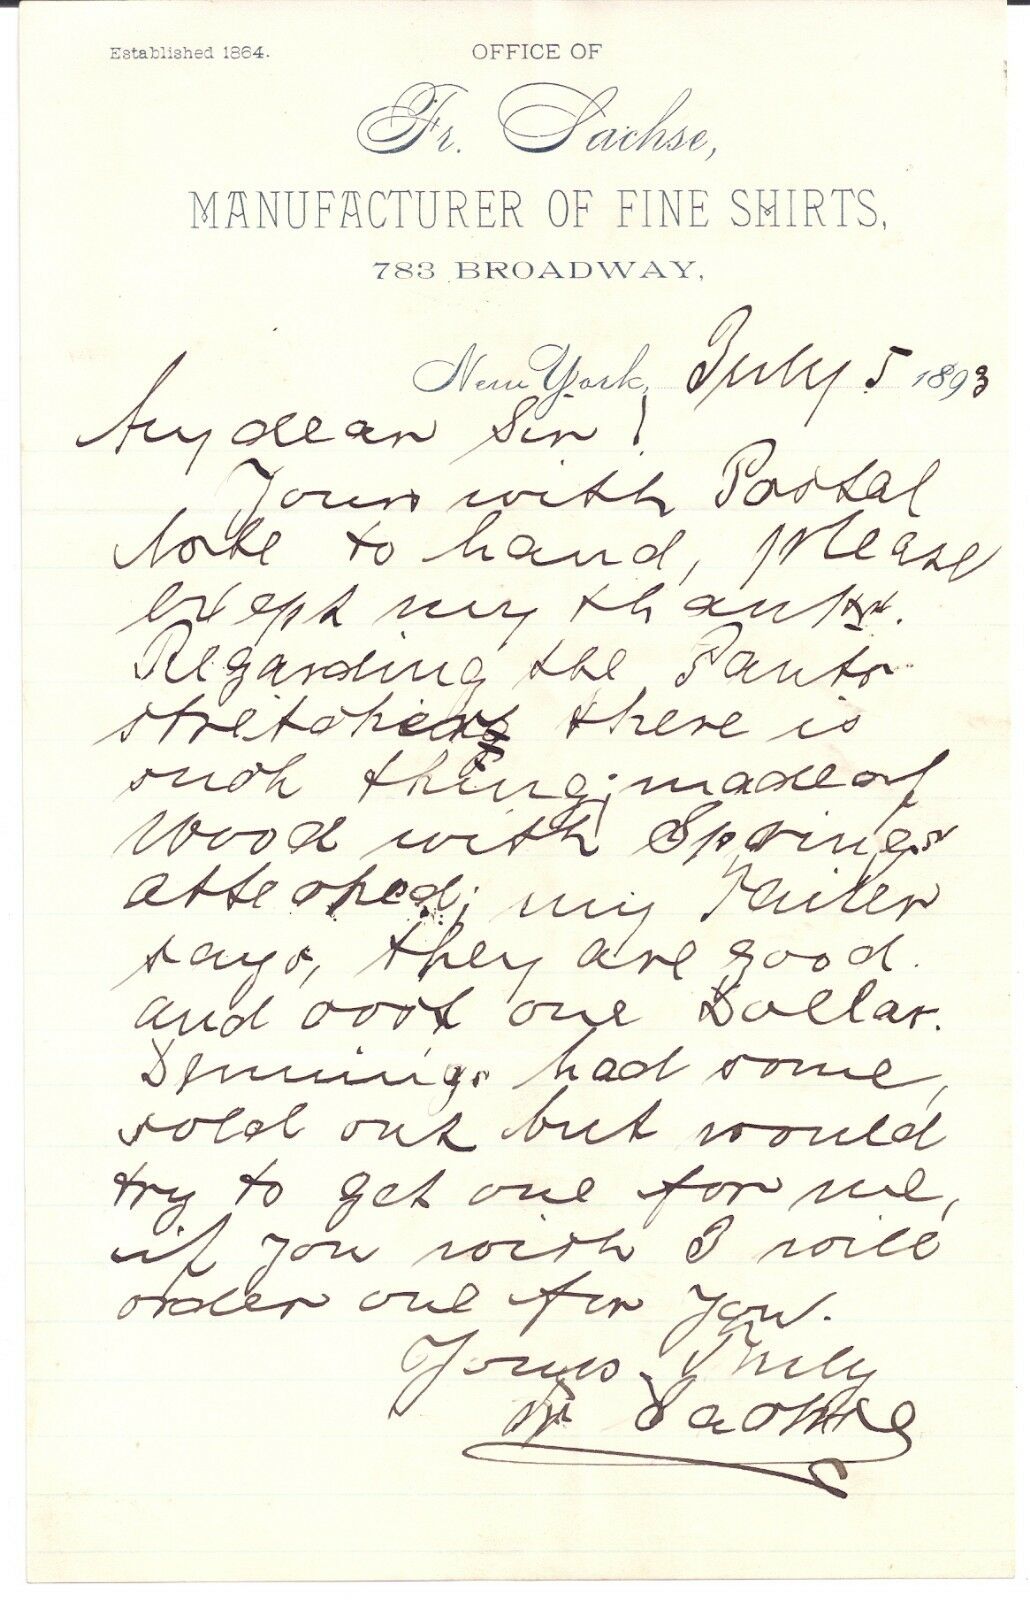 Established 1864.
OFFICE OF
Fr. Sachse,
MANUFACTURER OF FINE SHIRTS,
783 BROADWAY,
New York, July 5 1893
My dear Sir!
Yours with Postal
Note to hand, please
exept my thanks.
Regarding the Pants
stretchers there is
such thing; made of
Wood with Springs
atteched; my Tailer
says, they are good
and cost one Dollar.
Dennings had some,
sold out but would
try to get one for me,
if you wish I will
order one for you.
Yours Truly
Fr Sachse